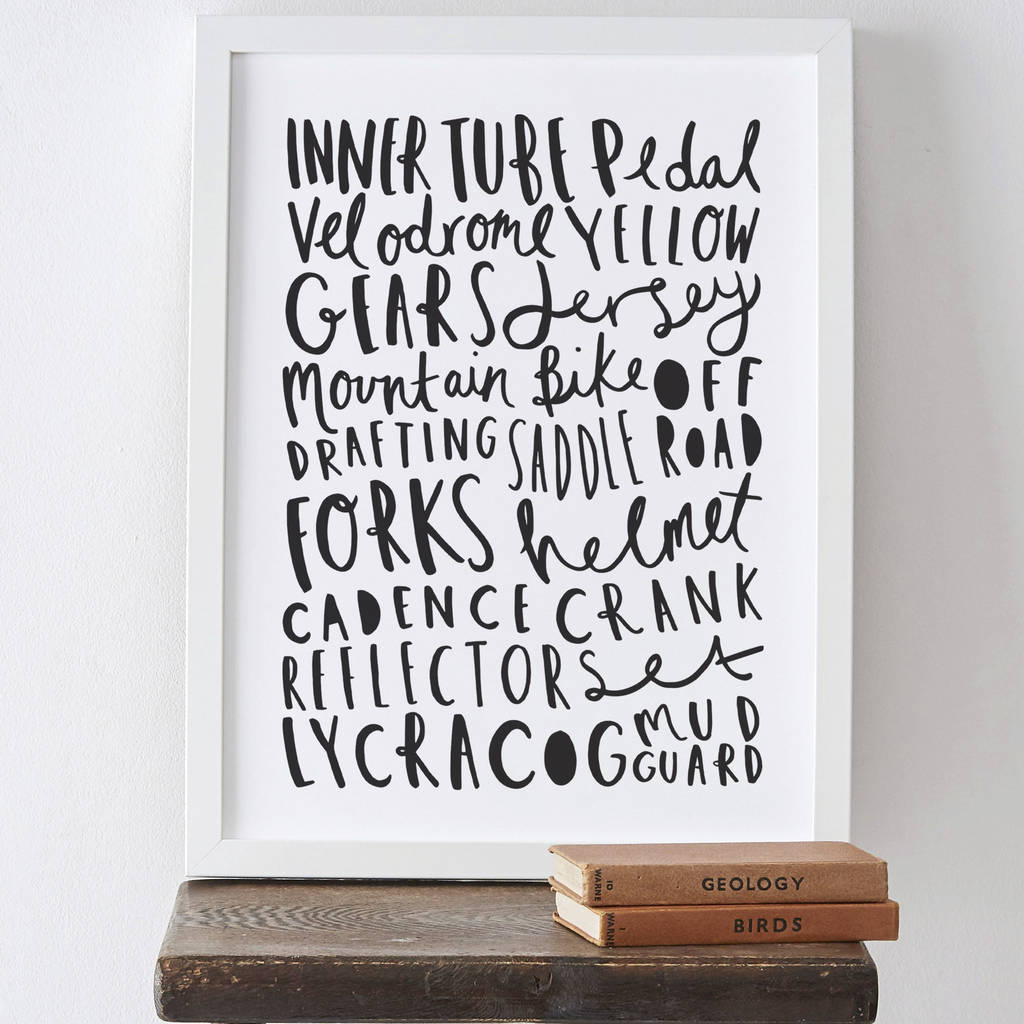 INNER TUBE Pedal
Velodrome YELLOW
GEARS Jersey
Mountain Bike OFF
DRAFTING SADDLE ROAD
FORKS helmet
CADENCE CRANK
REFLECTORS set
LYCRA COG MUD
GUARD
10 WARNE GEOLOGY
1 WARNE BIRDS